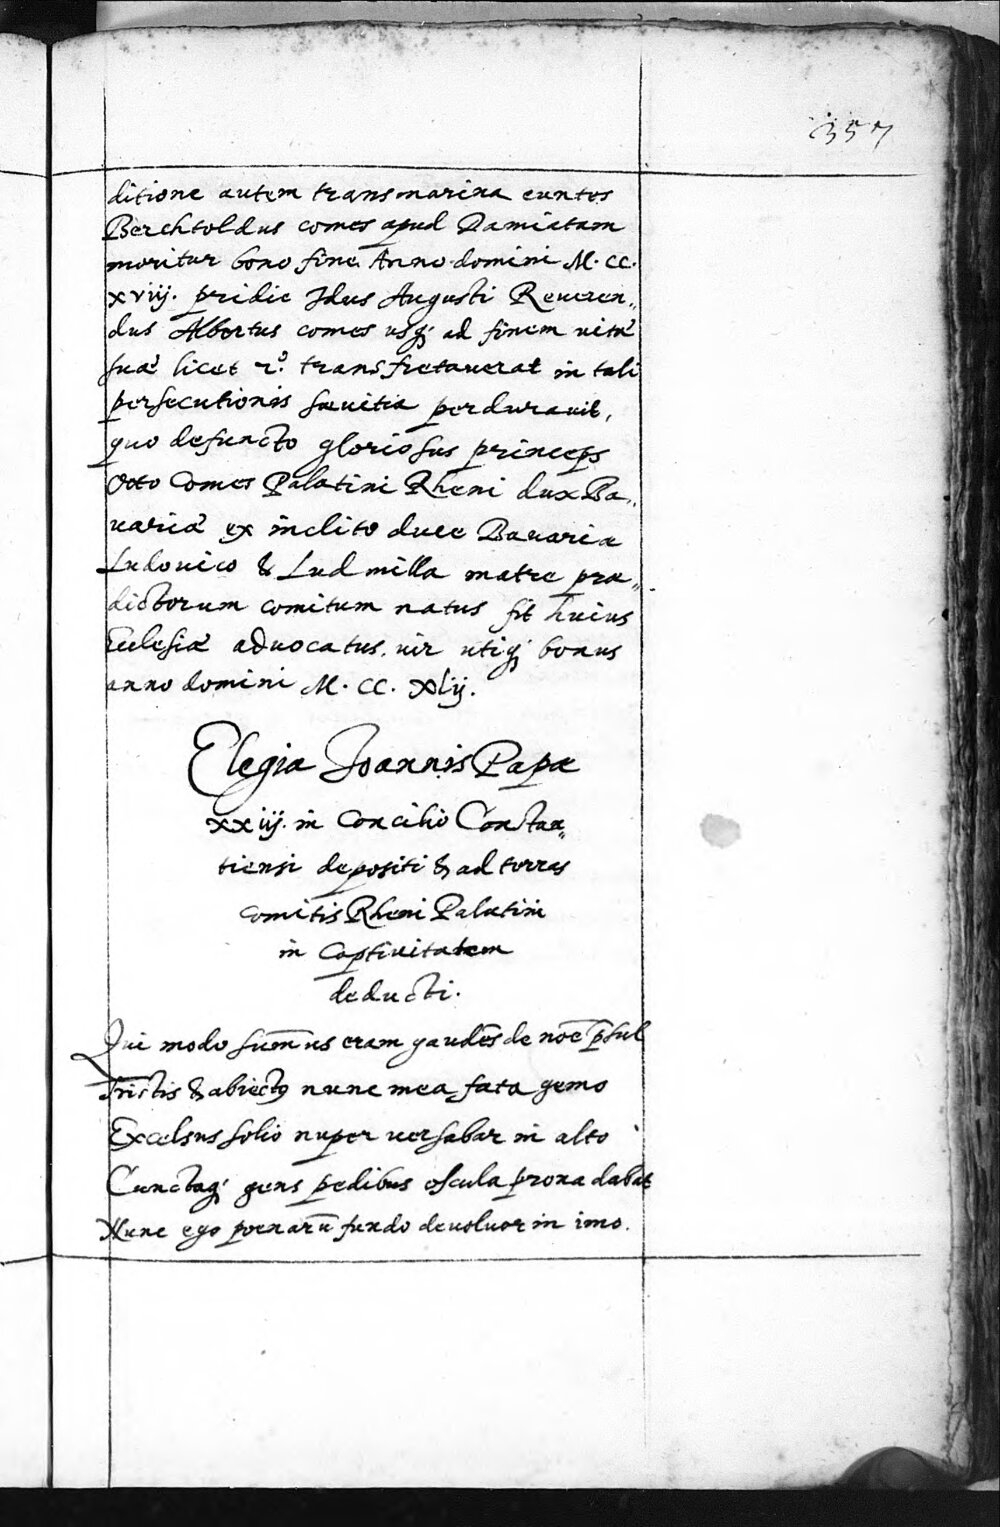 357
ditione autem transmarina euntes
Berchtoldus comes apud Damiatam
moritur bono fine Anno domini M. CC.
xviij. pridie Idus Augusti Reueren„
dus Albertus comes usq; ad finem uitæ
suæ licet 2.º transfretauerat in tali
persecutionis sæuitia perdurauit,
quo defuncto gloriosus princeps
Otto Comes Palatini Rheni dux Ba„
uariæ ex inclito duce Bauariæ
Ludouico & Ludmilla matre præ„
dictorum comitum natus fit huius
Ecclesiæ aduocatus, uir utiq; bonus
anno domini M. CC. xlij.
Elegia Joannis Papæ
xxiij. in Concilio Constan„
tiensi depositi & ad terras
comitis Rheni Palatini
in captiuitatem
deducti.
Qui modo sum̄us eram gaudēs de noīe p̄sul
Tristis & abiectꝯ nunc mea fata gemo
Excelsus solio nuper uersabar in alto
Cunctaq; gens pedibus oscula prona dabat
Nunc ego poenarū fundo deuoluor in imo.